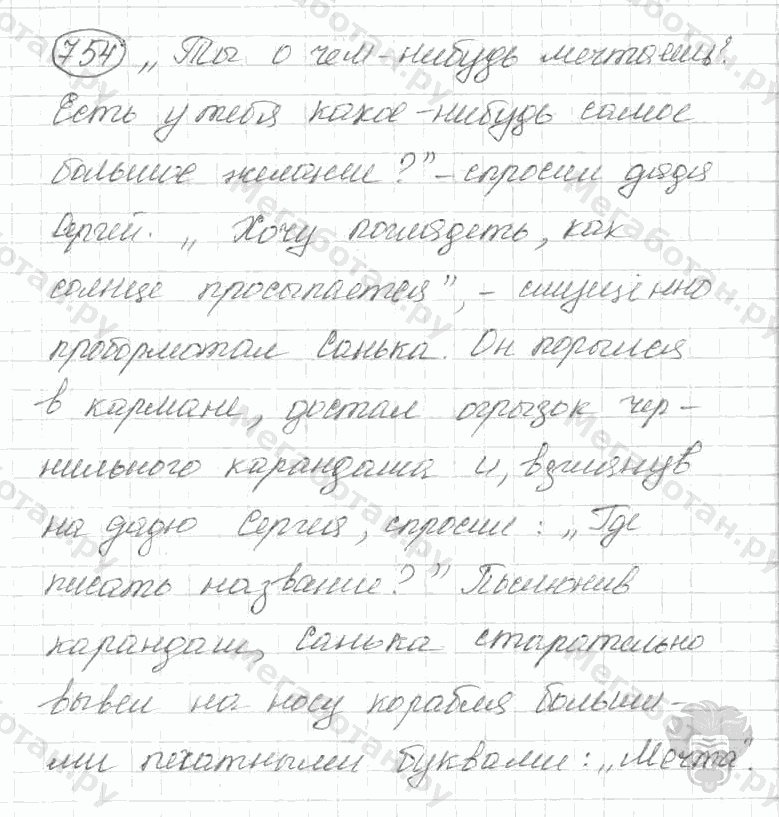 754 „Ты о чем-нибудь мечтаешь?
Есть у тебя какое-нибудь самое
большое желание?" – спросил дядя
Сергей. „Хочу поглядеть, как
солнце просыпается", – смущенно
пробормотал Санька. Он порылся
в кармане, достал огрызок чер-
нильного карандаша и, взглянув
на дядю Сергея, спросил: „Где
писать название?" Послюнив
карандаш, Санька старательно
вывел на носу корабля больши-
ми печатными буквами: „Мечта".
Мегаботан.ру